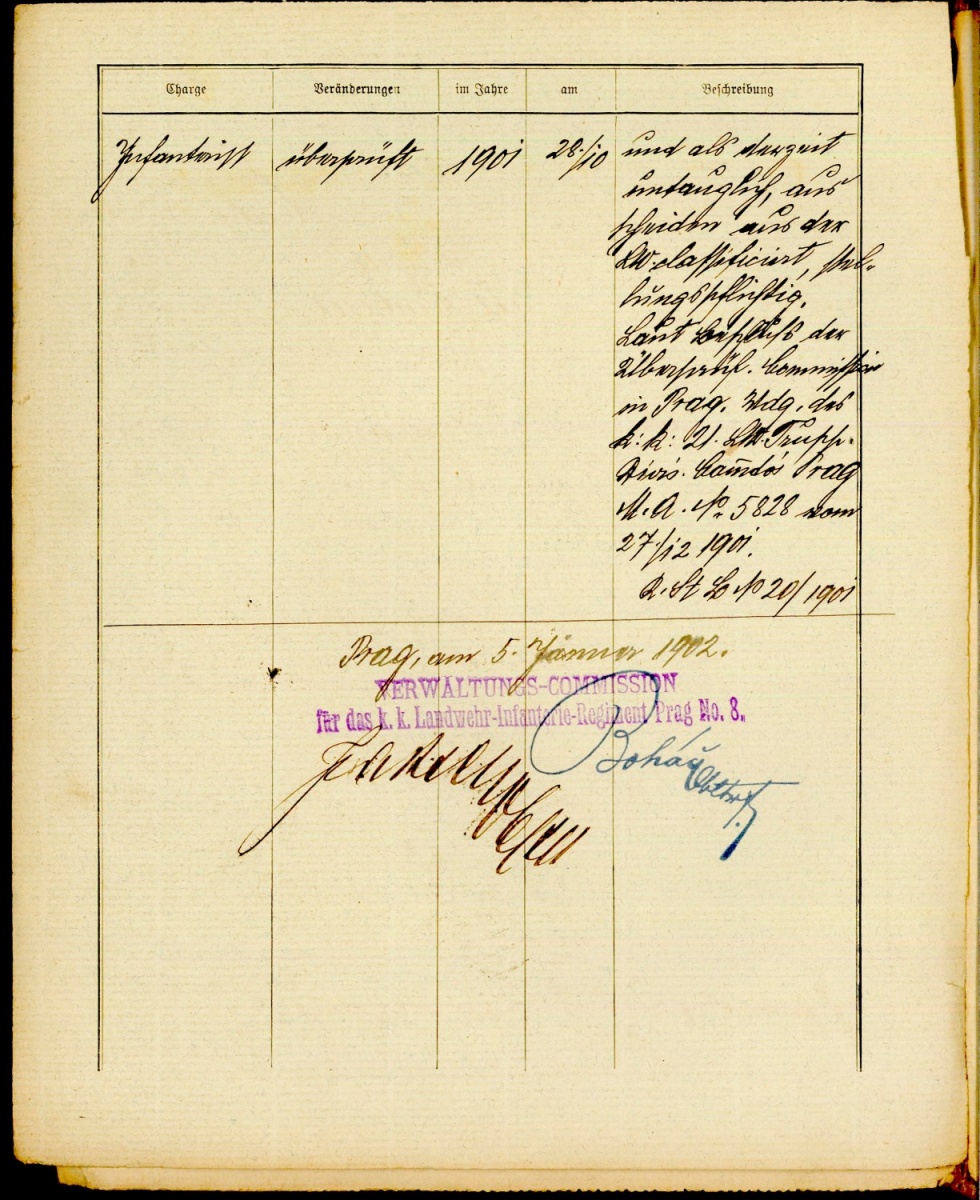 Charge Veränderungen im Jahre am Beschreibung
Infanterist überprüft 1901 28./10 und als derzeit
untauglich, aus
scheiden aus der
LW. classificiert, stel-
lungspflichtig.
Laut Beschluß der
Überprüf. Commission
in Prag. des
k: k: 21. LW. Trupp.
Divis. Comdos Prag
M. A. No 5828 vom
27./12 1901.
St No 20/1901
Prag, am 5. Jänner 1902.
VERWALTUNGS-COMMISSION
für das k. k. Landwehr-Infanterie-Regiment Prag No. 8.
Boháč